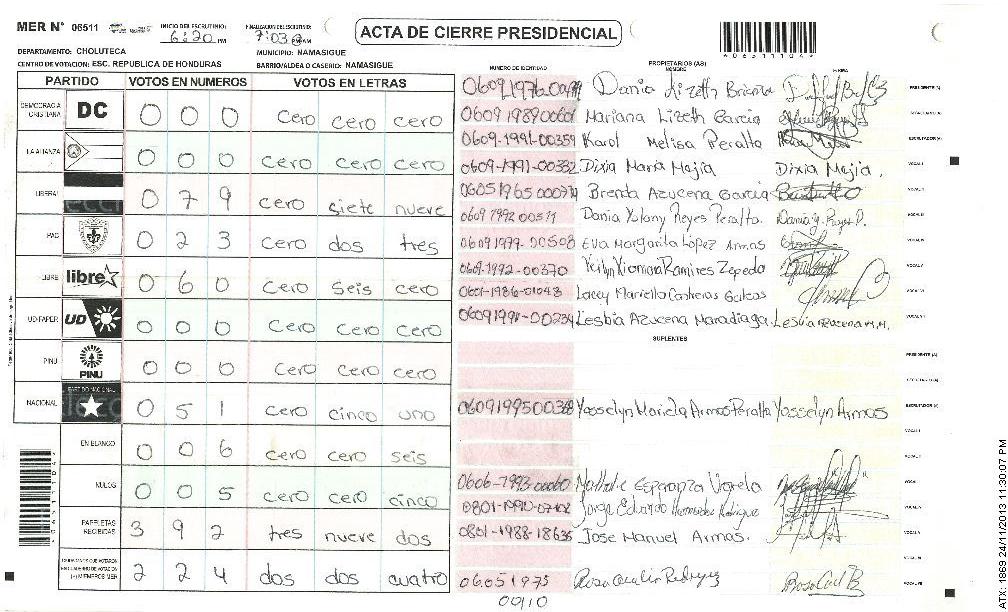 MER N° 06511 INICIO DEL ESCRUTINIO: 6:20 PM FINALIZACION DEL ESCRUTINIO: 7:03 PM
ACTA DE CIERRE PRESIDENCIAL
DEPARTAMENTO: CHOLUTECA MUNICIPIO: NAMASIGUE
CENTRO DE VOTACION: ESC. REPUBLICA DE HONDURAS BARRIO/ALDEA O CASERIO: NAMASIGUE
PARTIDO VOTOS EN NUMEROS VOTOS EN LETRAS
DEMOCRACIA CRISTIANA DC 0 0 0 cero cero cero
LA ALIANZA 0 0 0 cero cero cero
LIBERAL 0 7 9 cero siete nueve
PAC 0 2 3 cero dos tres
LIBRE libre 0 6 0 cero seis cero
UD-FAPER UD 0 0 0 cero cero cero
PINU PINU 0 0 0 cero cero cero
NACIONAL PARTIDO NACIONAL 0 5 1 cero cinco uno
EN BLANCO 0 0 6 cero cero seis
NULOS 0 0 5 cero cero cinco
PAPELETAS RECIBIDAS 3 9 2 tres nueve dos
CIUDADANOS QUE VOTARON EN CUADERNO DE VOTACION (+) MIEMBROS MER 2 2 4 dos dos cuatro
NUMERO DE IDENTIDAD PROPIETARIOS (AS) NOMBRE FIRMA
Dania Lizeth PRESIDENTE (A)
Mariana Lizeth Garcia SECRETARIO (A)
0609-1991-00359 Karol Melisa Peralta ESCRUTADOR (A)
0609-1991-00332 Dixia Maria Mejia Dixia Mejia. VOCAL I
Brenda Azucena Garcia VOCAL II
0609 1992 00511 Dania Yolany Reyes Peralta. VOCAL III
06091979-00508 Eva Margarita López Armas VOCAL IV
0609-1992-00370 Ramires Zepeda VOCAL V
0601-1986-01048 Mariella Contreras
06091991-00234 Lesbia Azucena Maradiaga. Lesbia Azucena M.M. VOCAL VII
SUPLENTES
PRESIDENTE (A)
SECRETARIO (A)
Yosselyn Mariela Armas Peralta Yosselyn Armas ESCRUTADOR (A)
VOCAL I
Esperanza Varela
Jorge Eduardo Rodriguez
0801-1988-18635 Jose Manuel Armas.
06051975
00110
ATX: 1869 24/11/2013 11:30:07 PM